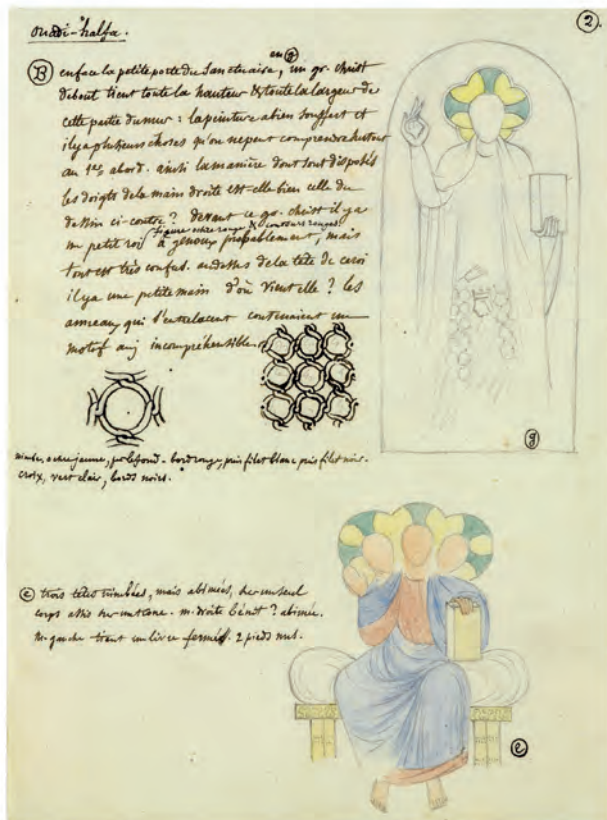 2.
Ouadi-halfa.
en g
B en face la petite porte du Sanctuaire, un gr. christ
debout tient toute la hauteur & toute la largeur de
cette partie du mur : la peinture a bien souffert et
il y a plusieurs choses qu'on ne peut comprendre surtout
au 1er abord. ainsi la manière dont sont disposés
les doigts de la main droite est-elle bien celle du
dessin ci-contre ? devant ce gr. christ il y a
figure ocre rouge & contours rouges
un petit roi à genoux probablement, mais
tout est très confus. au dessus de la tête de ce roi
il y a une petite main d'où vient elle ? les
anneaux qui s'entrelacent contenaient un
motif incompréhensible.
g
nimbe, ocre jaune, pr le fond - bord rouge, puis filet blanc puis filet noir.
croix, vert clair, bords noirs.
e trois têtes nimbées, mais abimées, sur un seul
corps assis sur un trone. m. droite bénit ? abimée.
m. gauche tient un livre fermé. 2 pieds nus.
e